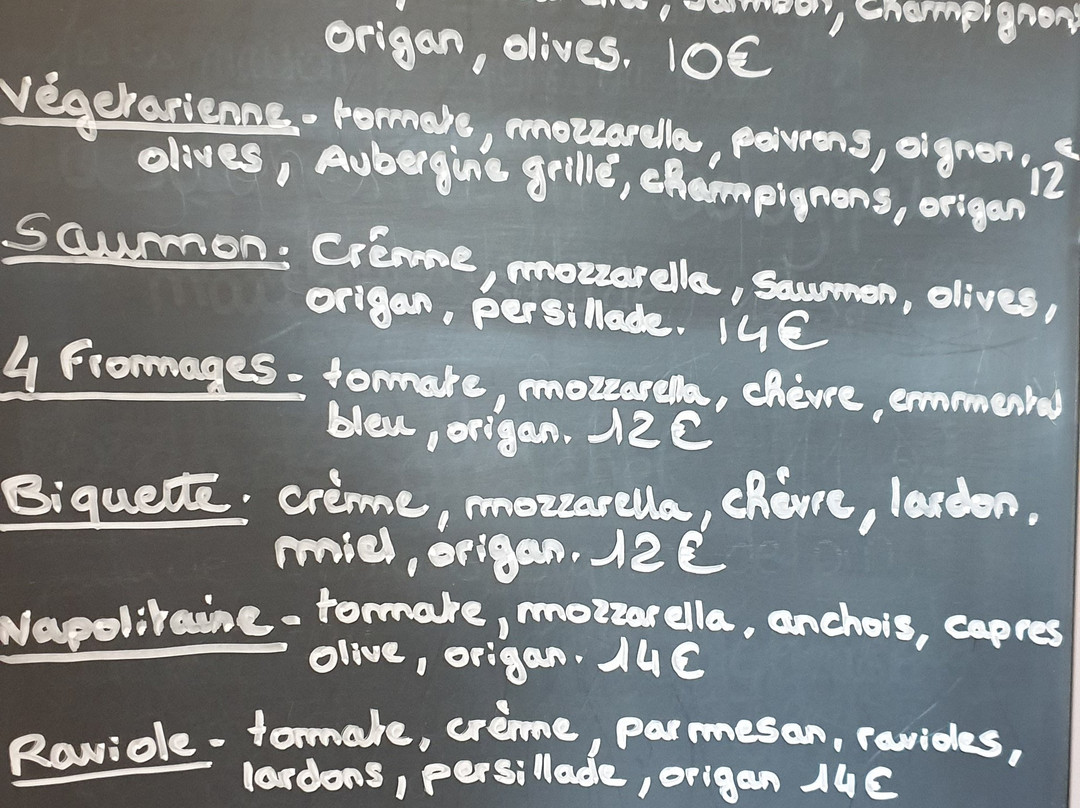 Jambon, Champignons
origan, olives. 10€
Végetarienne - tomate, mozzarella, poivrons, oignon,
olives, Aubergine grillé, champignons, origan 12€
Saumon. Crême, mozzarella, Saumon, olives,
origan, persillade. 14€
4 Fromages - tomate, mozzarella, chèvre, emmental
bleu, origan. 12€
Biquette. crème, mozzarella, chêvre, lardon,
miel, origan. 12€
Napolitaine - tomate, mozzarella, anchois, capres
olive, origan. 14€
Raviole - tomate, crème, parmesan, ravioles,
lardons, persillade, origan 14€